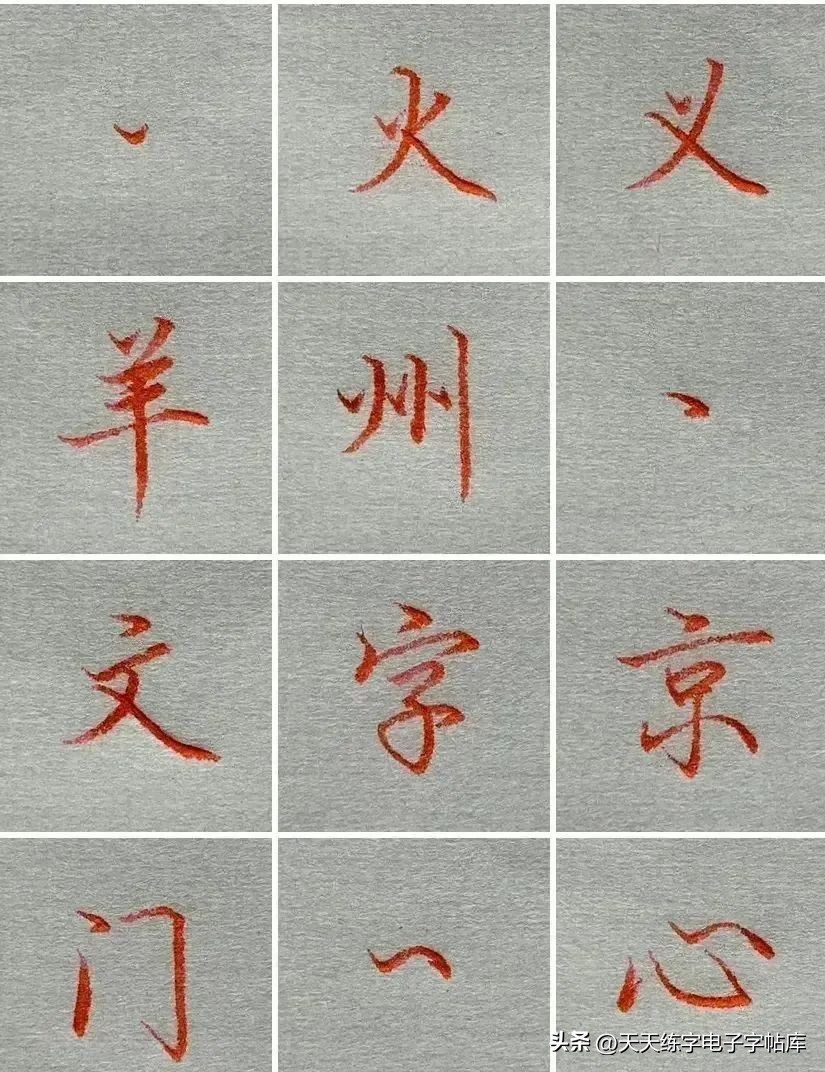 丶 火 义
羊 州 丶
文 字 京
门 心
头条 @天天练字电子字帖库